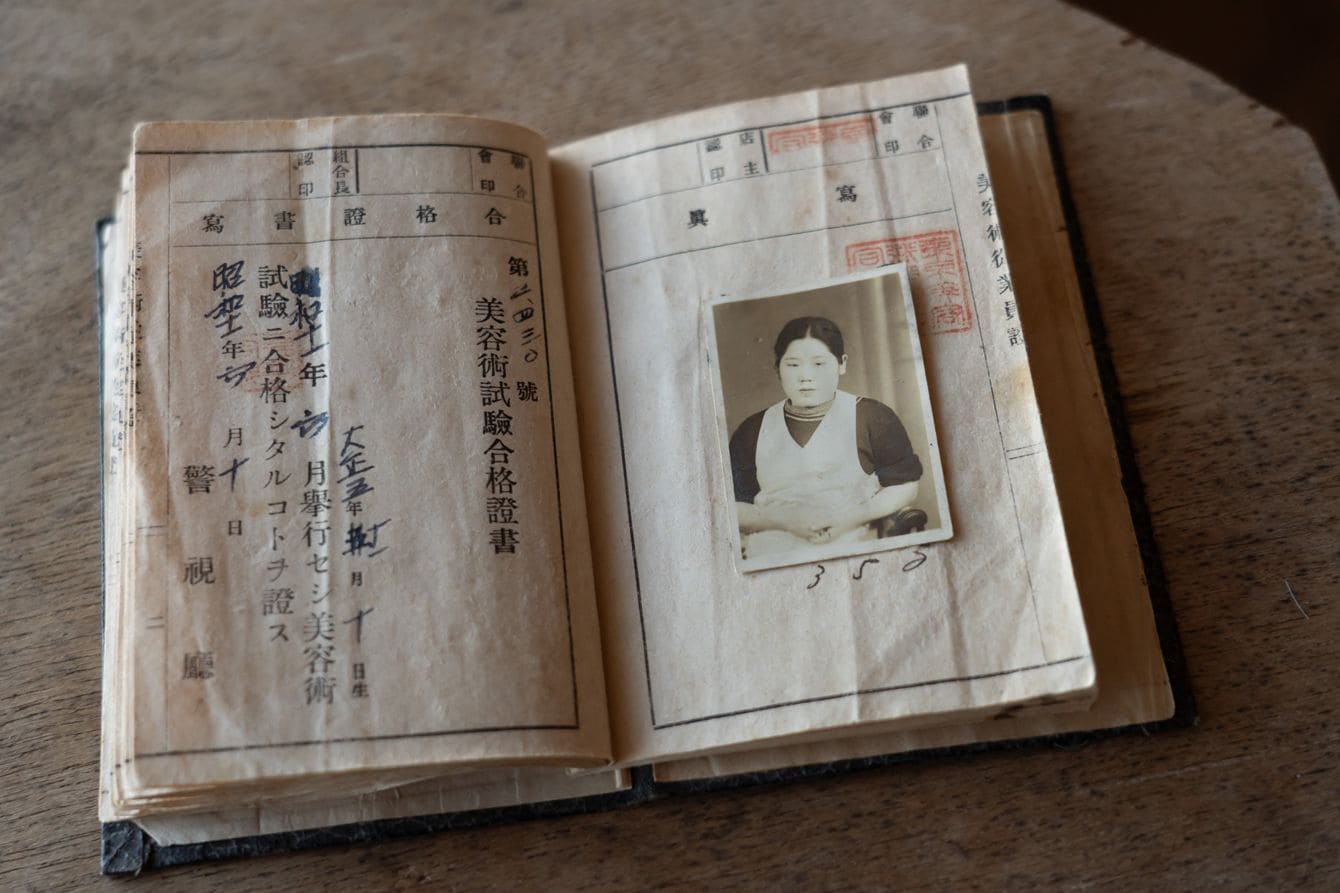 聯合會印
店主認印
寫眞
美容術從業員證
352
聯合會印
組合長認印
合格證書寫
第二、四三〇號
美容術試驗合格證書
大正五年 月十日生
昭和十一年 月擧行セシ美容術
試驗ニ合格シタルコトヲ證ス
昭和十一年 月十日
警視廳